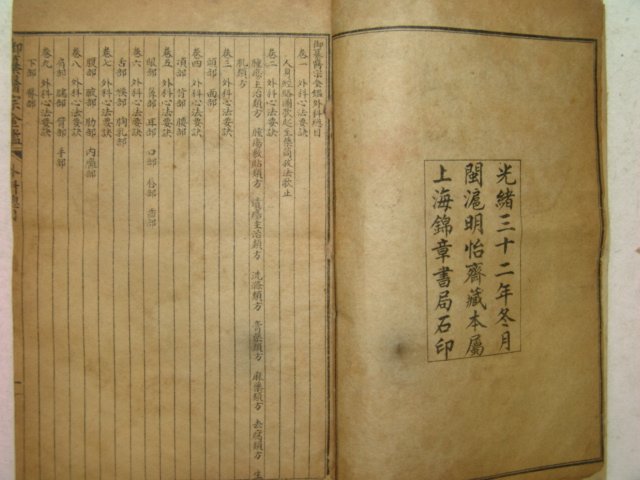 光緒三十二年冬月
閩滬明怡齋藏本屬
上海錦章書局石印
御纂醫宗金鑑外科總目
卷一 外科心法要訣
人身經絡圖歌起至集简攻法歌止
卷二 外科心法要訣
腫瘍主治類方 腫瘍敷貼類方 潰瘍主治類方 洗滌類方 膏藥類方 麻藥類方 去腐類方 生
肌類方
卷三 外科心法要訣
頭部 面部
卷四 外科心法要訣
項部 背部 腰部
卷五 外科心法要訣
眼部 鼻部 耳部 口部 唇部 齒部
卷六 外科心法要訣
舌部 喉部 胸乳部
卷七 外科心法要訣
腹部 腋部 肋部 內癰部
卷八 外科心法要訣
肩部 臑部 臂部 手部
卷九 外科心法要訣
下部 臀部
御纂醫宗金鑑 外科總目 一